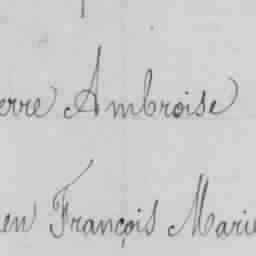 erre Ambroise
en François Marie